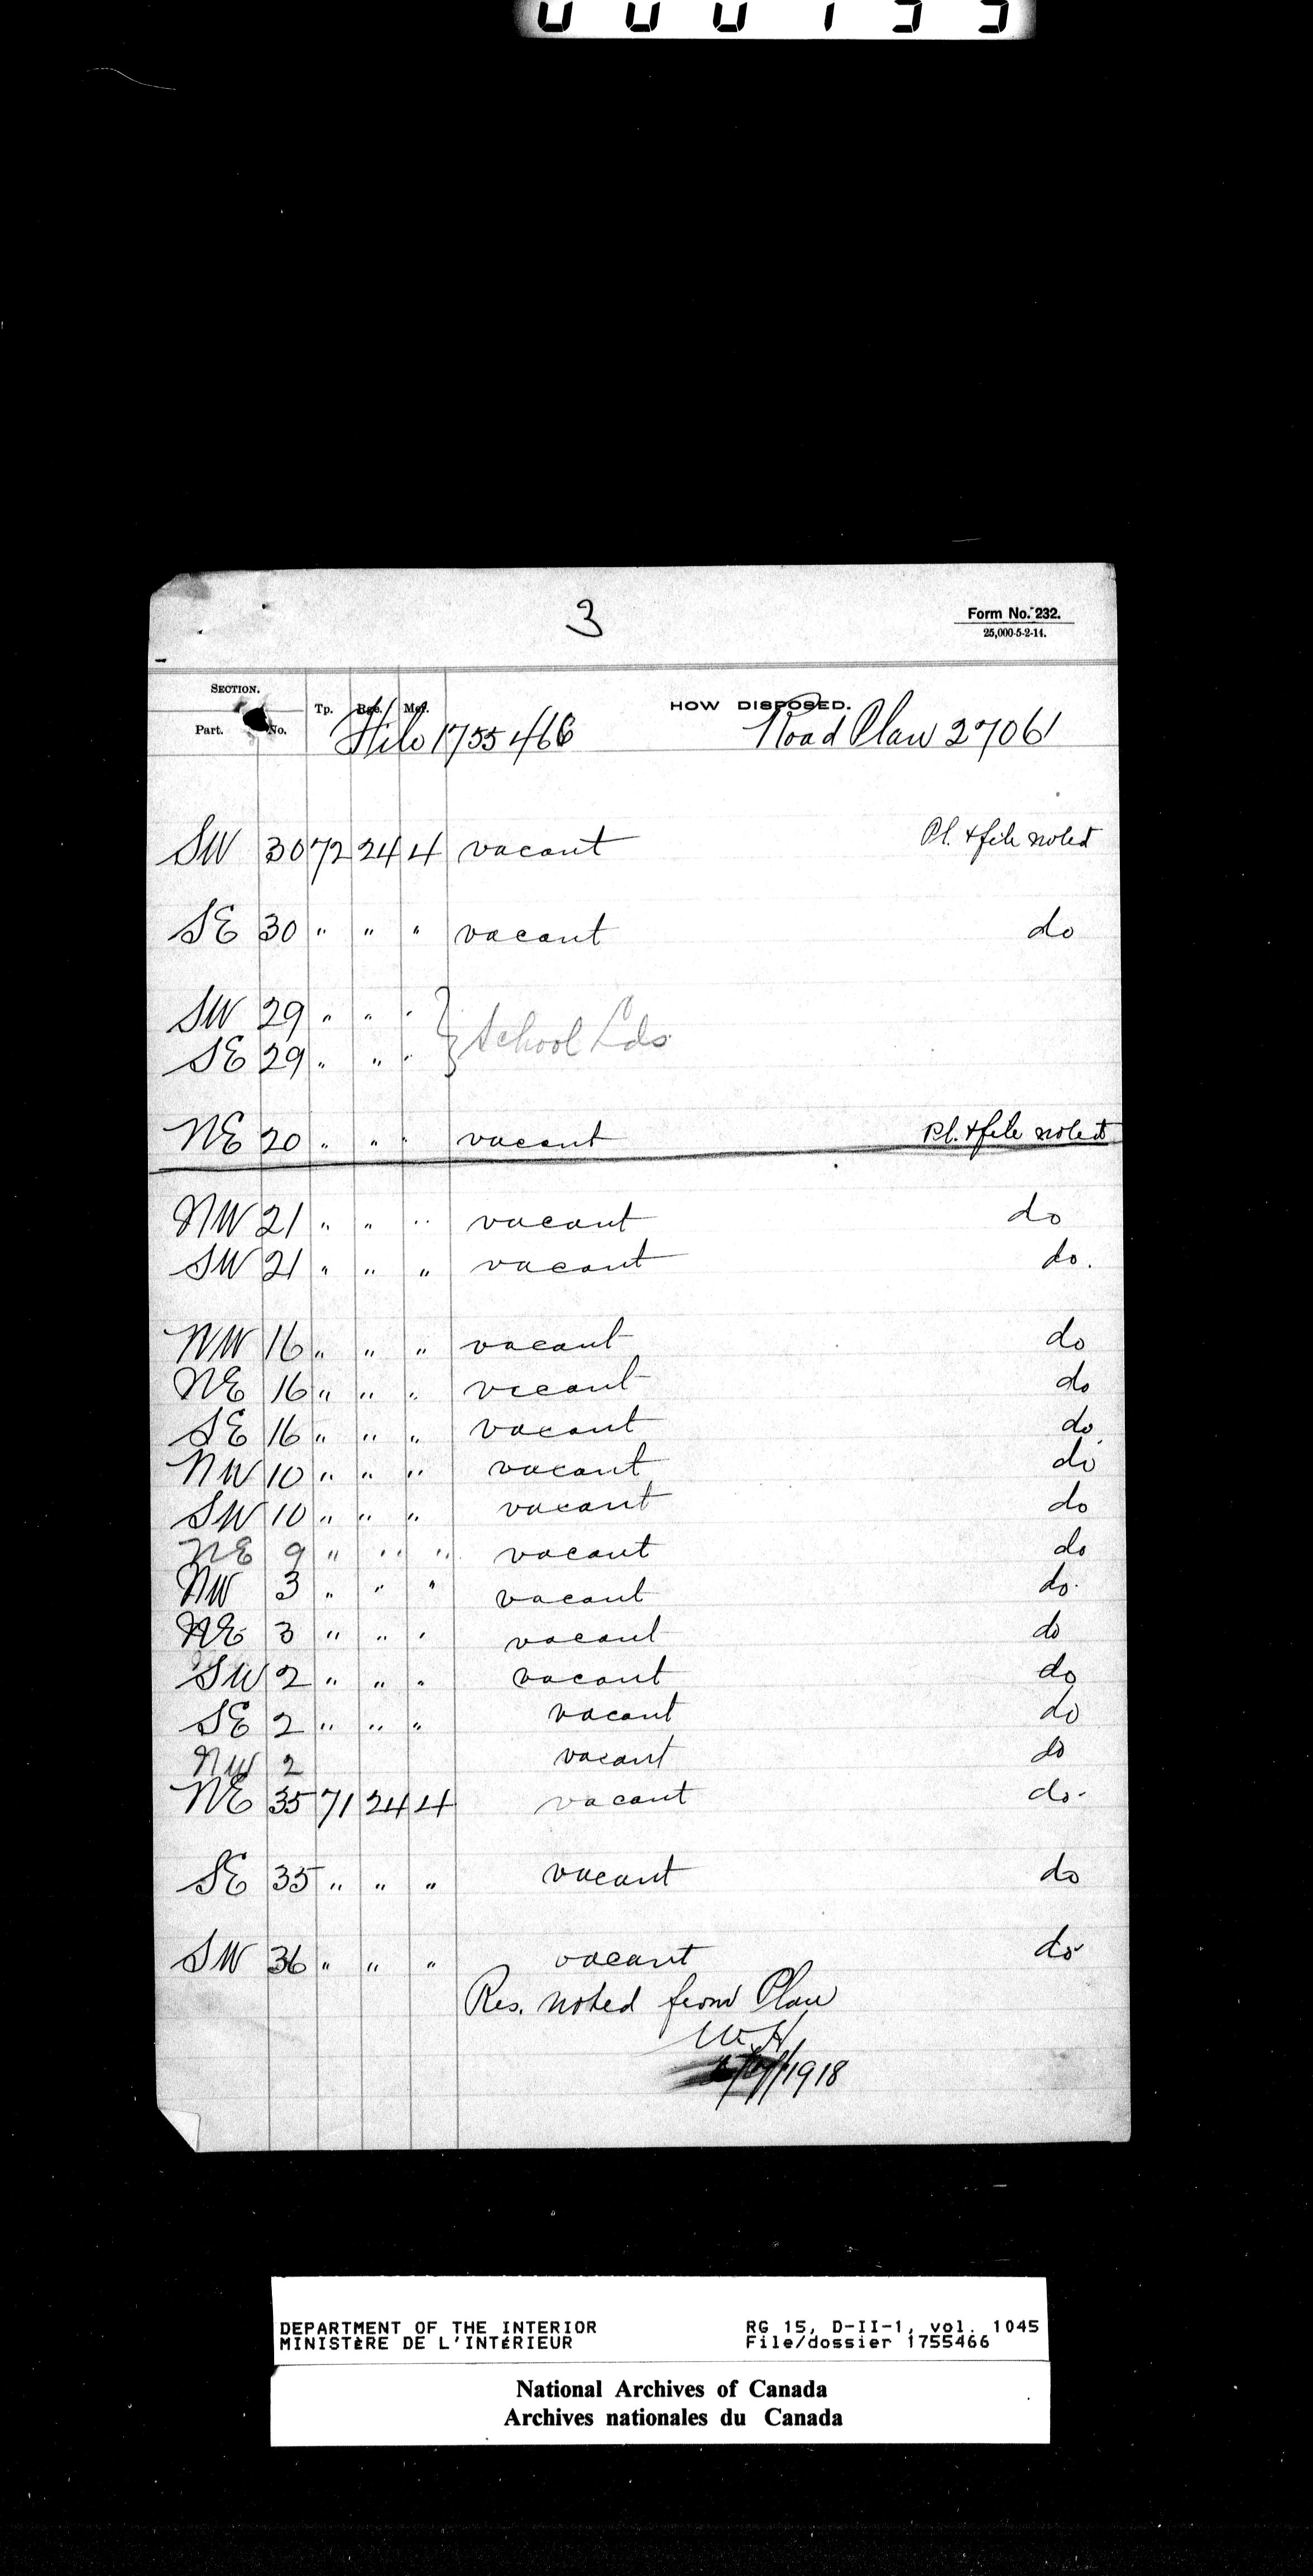 3
Form No. 232.
25,000-5-2-14.
SECTION. Tp. Rge. Mer. HOW DISPOSED.
Part. No. File 1755466 Road Plan 27061
SW 30 72 24 4 vacant Pl. & file noted
SE 30 " " " vacant do
SW 29 " " " } School Lds.
SE 29 " " "
NE 20 " " " vacant Pl. & file noted
NW 21 " " " vacant do
SW 21 " " " vacant do.
NW 16 " " " vacant do
NE 16 " " " vacant do
SE 16 " " " vacant do
NW 10 " " " vacant do
SW 10 " " " vacant do
NE 9 " " " vacant do
NW 3 " " " vacant do.
NE 3 " " " vacant do
SW 2 " " " vacant do
SE 2 " " " vacant do
NW 2 vacant do
NE 35 71 24 4 vacant do.
SE 35 " " " vacant do
SW 36 " " " vacant do
Res. noted from Plan
W.H.
1918
DEPARTMENT OF THE INTERIOR RG 15, D-II-1, vol. 1045
MINISTÈRE DE L'INTÉRIEUR File/dossier 1755466
National Archives of Canada
Archives nationales du Canada